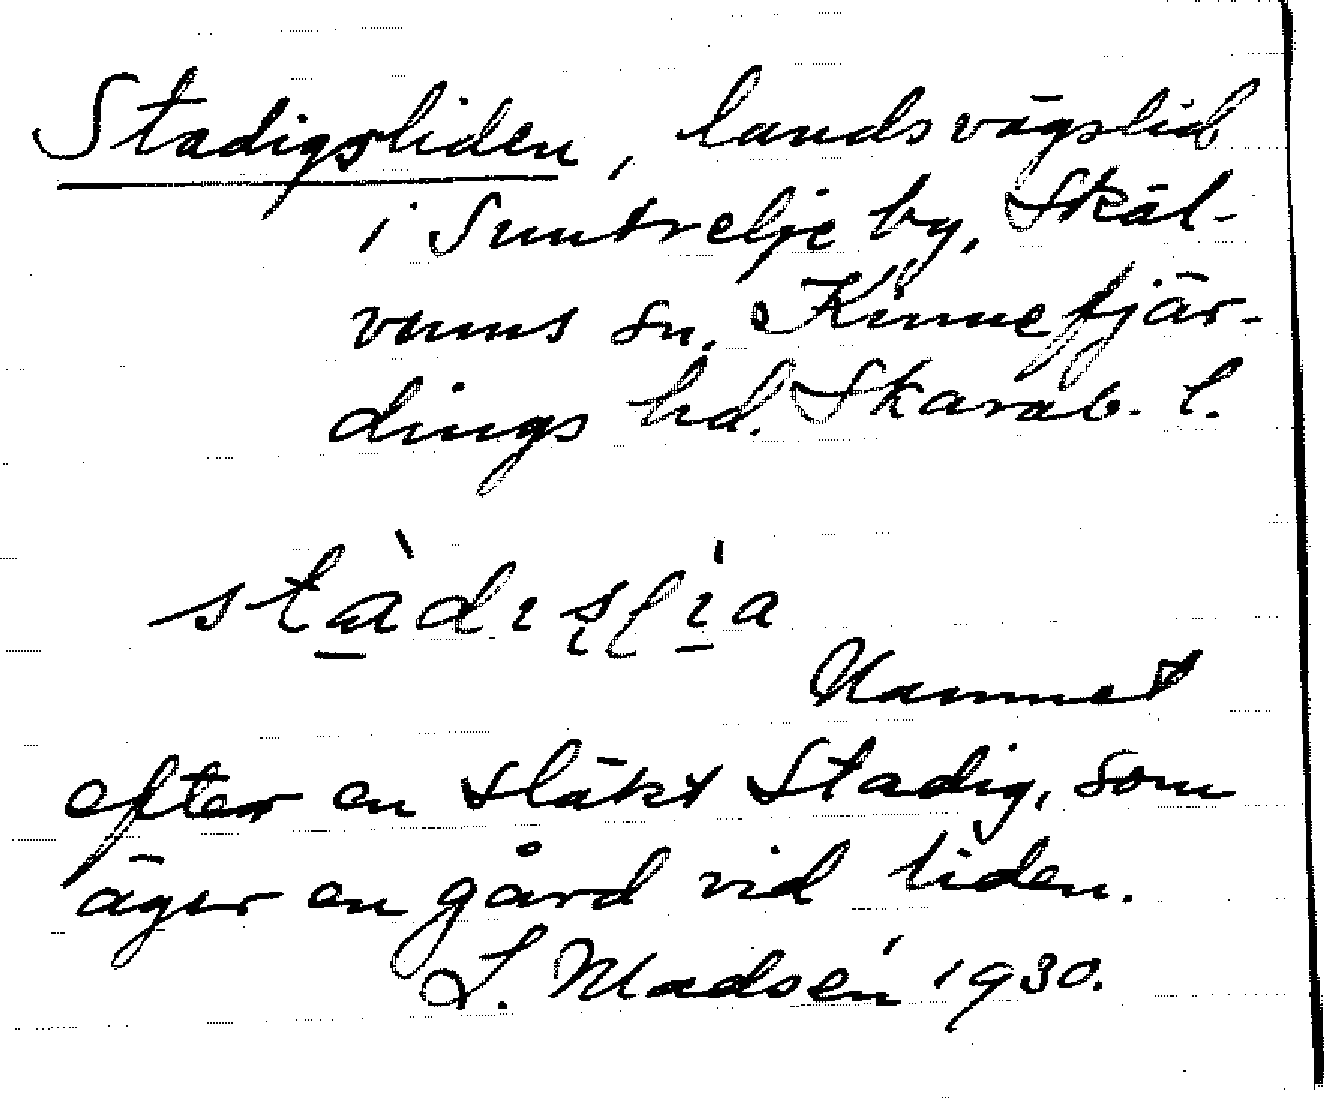 Stadigsliden, landsvägslid
i Suntrelje by, Skäl-
vums sn. Kinnefjär-
dings hd. Skarab. l.
stàdɩsl̍ɩa
Namnet
efter en släkt Stadig, som
äger en gård vid liden.
L. Madsén 1930.